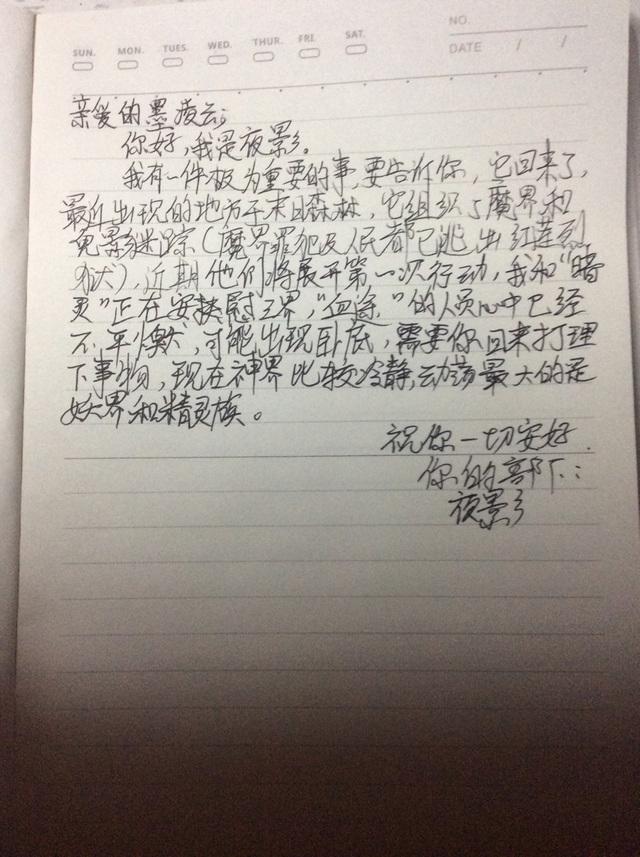 SUN. MON. TUES. WED. THUR. FRI. SAT.
NO.
DATE / /
亲爱的墨凌云：
你好，我是夜影。
我有一件极为重要的事，要告诉你，它回来了，
最近出现的地方于末日森林，它组织了魔界和
影迷踪（魔界罪犯及人民都已逃出红莲烈
狱），近期他们将展开第一次行动，我和“暗
灵”正在安慰三界，“血途”的人员心中已经
不平默，可能出现卧底，需要你回来打理
下事物，现在神界比较冷静，动荡最大的是
妖界和精灵族。
祝你一切安好.
你的部下：
夜影